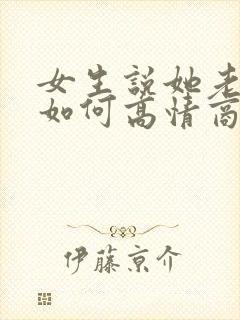 女生説她老
如何高情商
伊藤京介